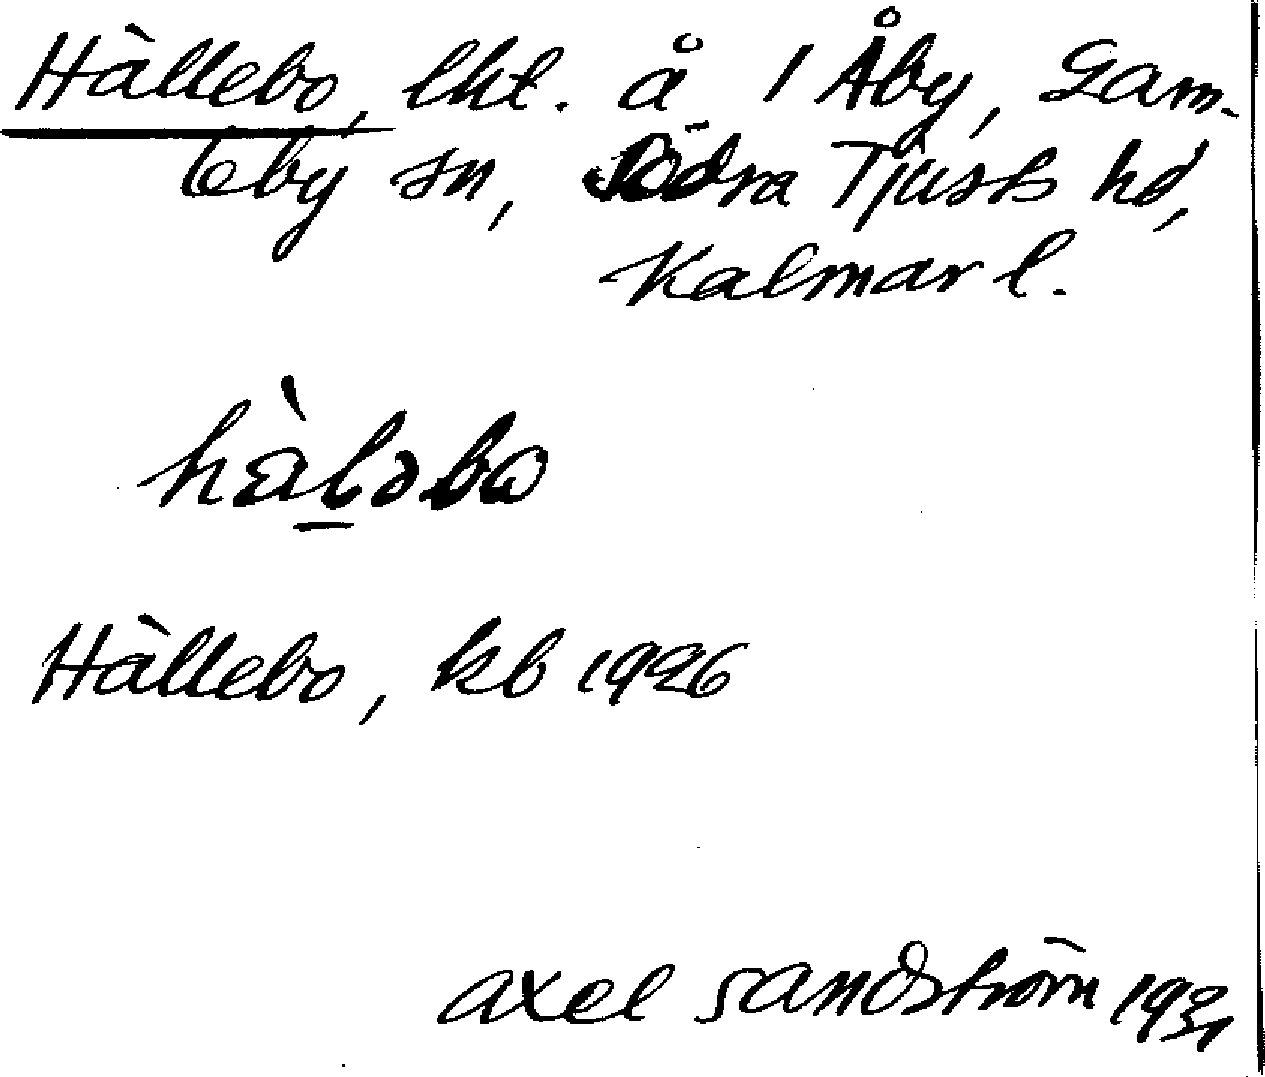 Hällebo, lht. å 1 Åby, Gam-
leby sn, Södra Tjusts hd,
Kalmar l.
Hällebo, kb 1926
Axel Sandström 1931